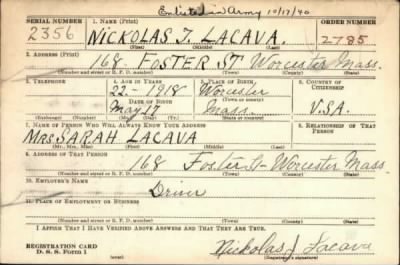 Enlisted in Army 10/17/40
SERIAL NUMBER 1. NAME (Print) ORDER NUMBER
2356 NICKOLAS J. LACAVA. 2785
(First) (Middle) (Last)
2. ADDRESS (Print)
168 FOSTER ST Worcester Mass.
(Number and street or R. F. D. number) (Town) (County) (State)
3. TELEPHONE 4. AGE IN YEARS 5. PLACE OF BIRTH 6. COUNTRY OF CITIZENSHIP
22 - 1918 Worcester
DATE OF BIRTH (Town or county)
May 17 Mass. U.S.A.
(Mo.) (Day) (Yr.) (State or country)
7. NAME OF PERSON WHO WILL ALWAYS KNOW YOUR ADDRESS 8. RELATIONSHIP OF THAT PERSON
Mrs SARAH LACAVA
(Mr., Mrs., Miss) (First) (Middle) (Last)
9. ADDRESS OF THAT PERSON
168 Foster St Worcester Mass.
(Number and street or R. F. D. number) (Town) (County) (State)
10. EMPLOYER'S NAME
Driver
11. PLACE OF EMPLOYMENT OR BUSINESS
(Number and street or R. F. D. number) (Town) (County) (State)
I AFFIRM THAT I HAVE VERIFIED ABOVE ANSWERS AND THAT THEY ARE TRUE.
REGISTRATION CARD
D. S. S. Form 1 Nickolas J Lacava
(Registrant's signature)